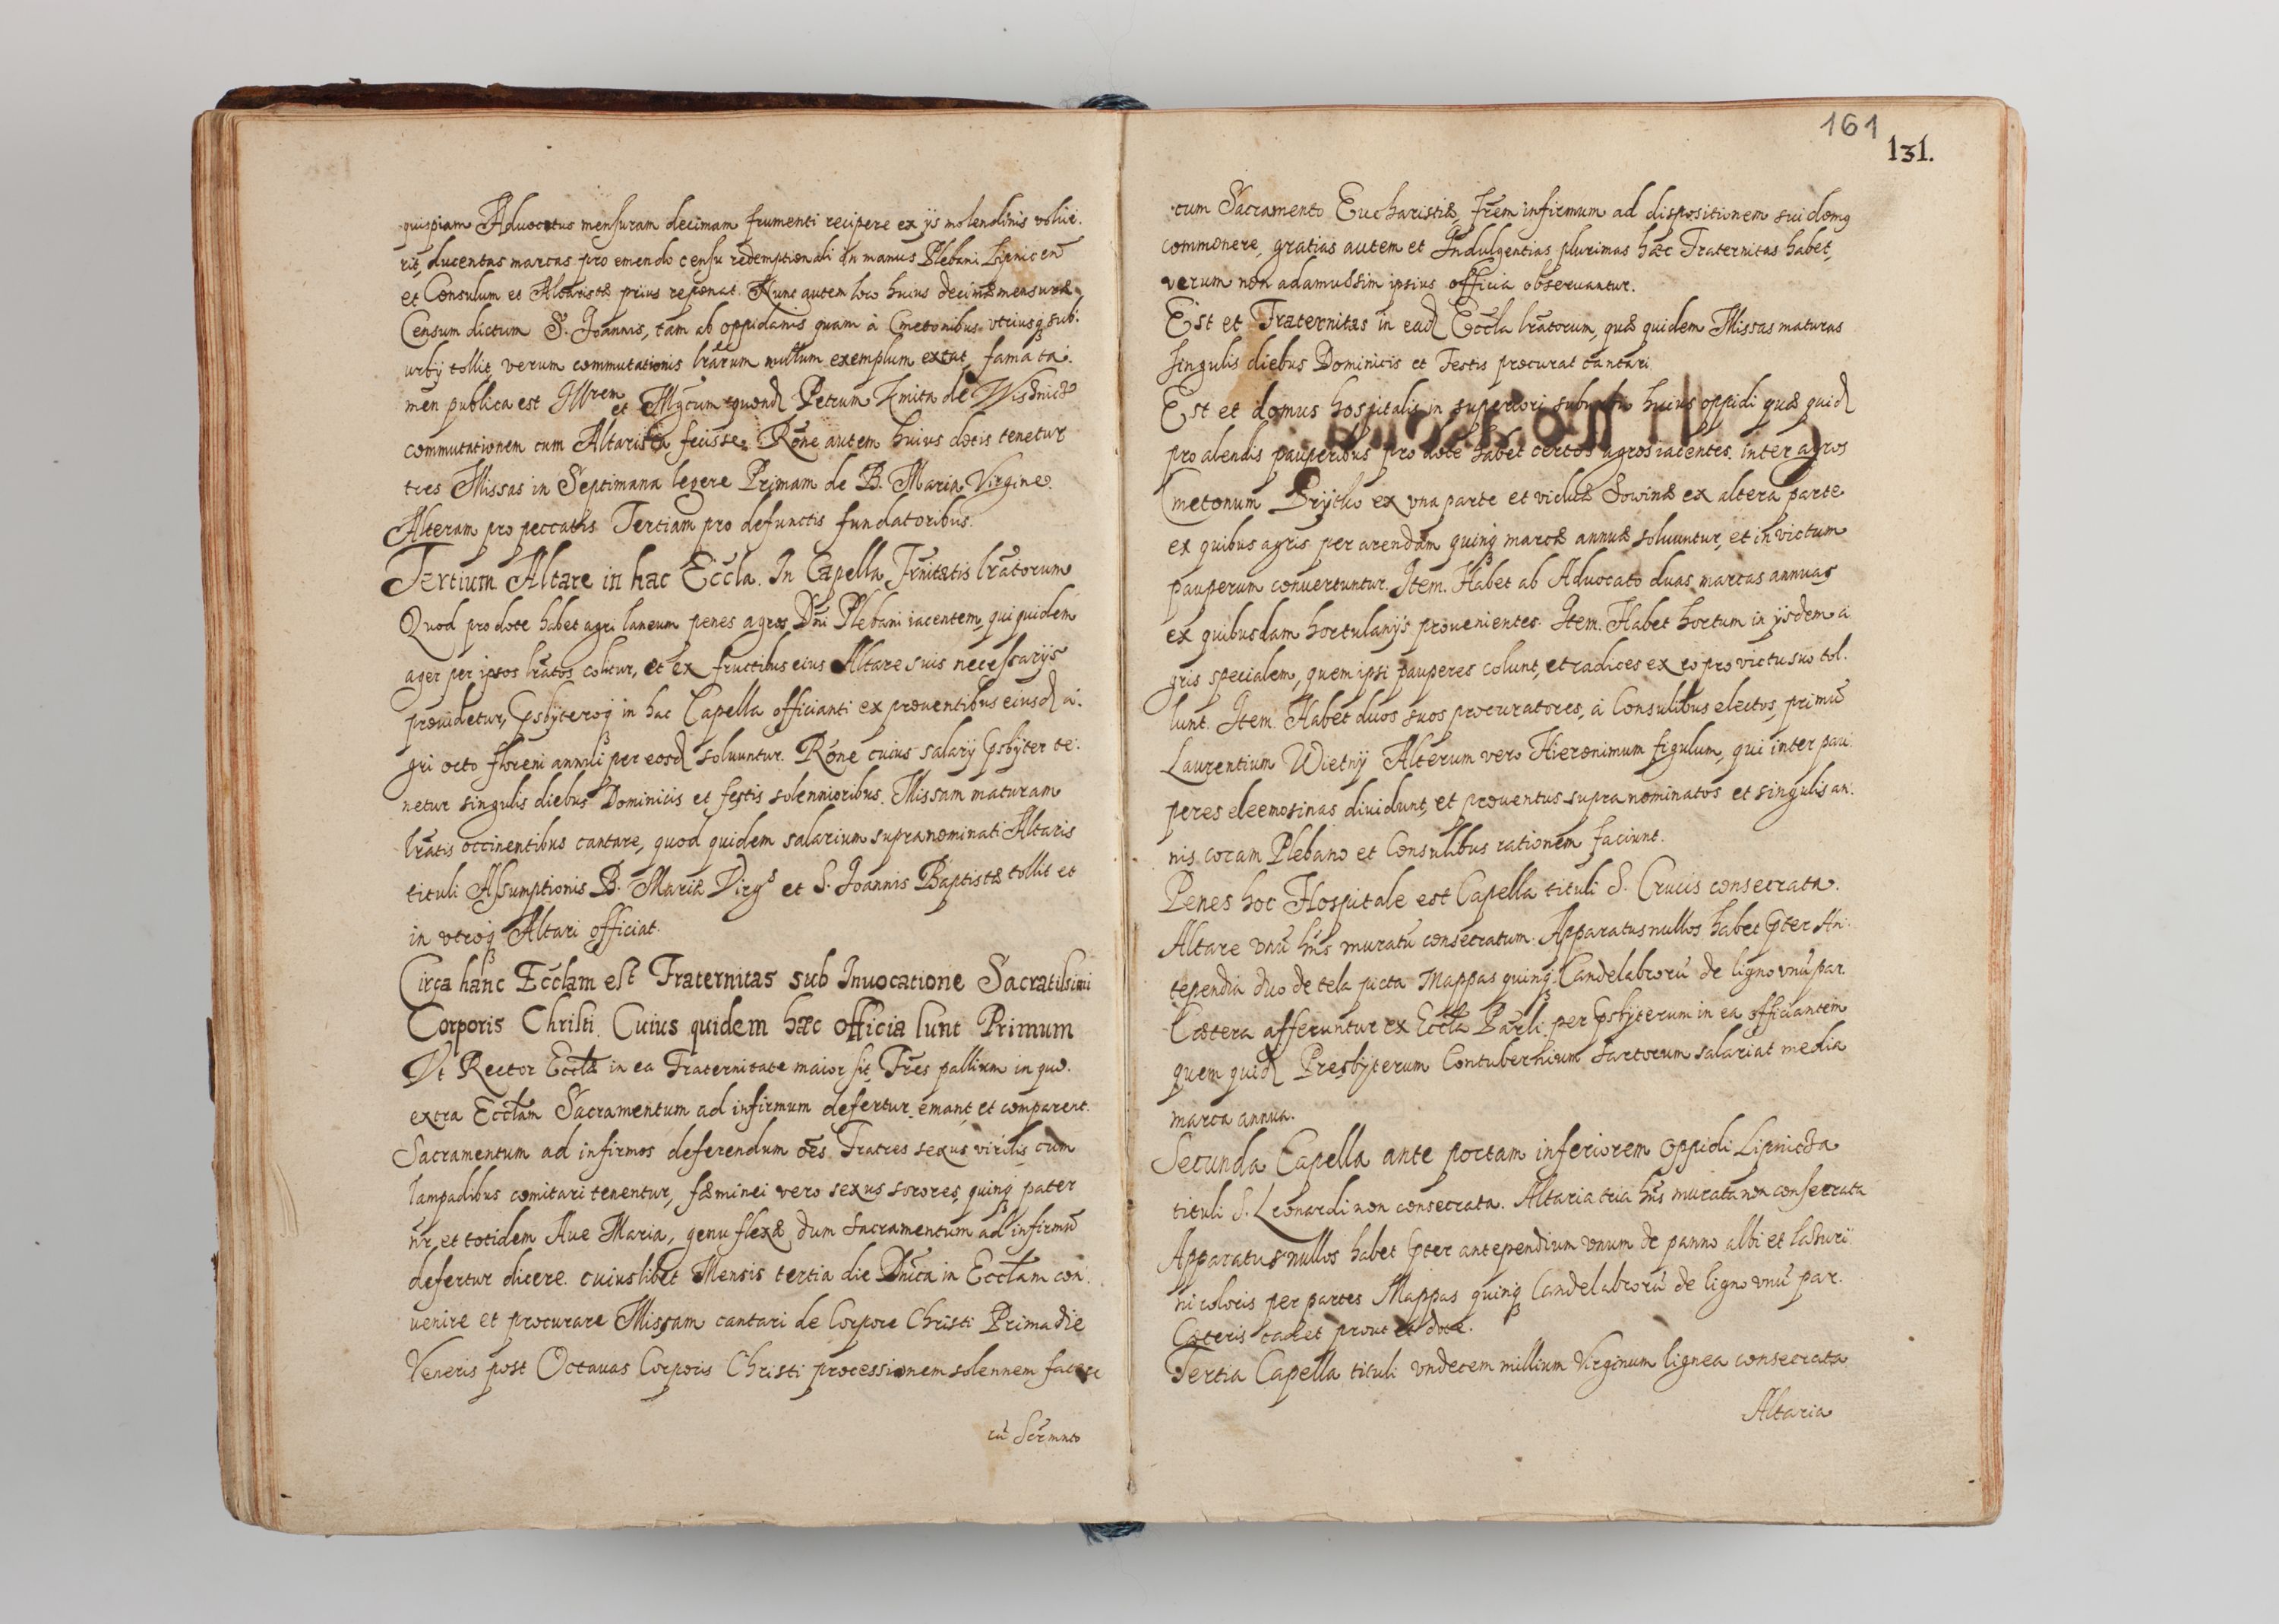 quispiam Aduocatus mensuram decimam frumenti recipere ex ijs molendinis volue-
rit, ducentas marcas pro emendo censu redemptionali in manus Plebani Lipnicen̄
et Consulum et Altaristæ prius reponat. Nunc autem loco huius decimæ mensuræ
Censum dictum S. Joannis, tam ab oppidanis quam à Cmetonibus vtriusq sub-
urbij tollit, verum commutationis lrārum nullum exemplum extat, fama ta-
men publica est Illrem et Mgcum quond Petrum Kmita de Wisznicz
commutationem cum Altarista fecisse. Rōne autem huius dotis tenetur
tres Missas in Septimana legere Primam de B. Maria Virgine.
Alteram pro peccatis. Tertiam pro defunctis fundatoribus.
Tertium Altare in hac Eccla. In Capella Frnitatis lrātorum
Quod pro dote habet agri laneum penes agros Dn̄i Plebani iacentem, qui quidem
ager per ipsos lrātos colitur, et ex fructibus eius Altare suis necessarijs
prouidetur, Psbyteroq in hac Capella officianti ex prouentibus eiusd a-
gri octo floreni annui per eosd soluuntur. Rōne cuius salarij Psbyter te-
netur singulis diebus Dominicis et festis solennioribus Missam maturam
lrātis occinentibus cantare, quod quidem salarium supranominati Altaris
tituli Assumptionis B. Mariæ Virgs et S. Joannis Baptistæ tollit et
in vtroq Altari officiat.
Circa hanc Ecclam est Fraternitas sub Inuocatione Sacratissimi
Corporis Christi. Cuius quidem hæc officia sunt Primum
Vt Rector Ecclæ in ea Fraternitate maior sit, Frēs pallium in quo
extra Ecclam Sacramentum ad infirmum defertur emant et comparent.
Sacramentum ad infirmos deferendum oēs Fratres sexus virilis cum
lampadibus comitari tenentur, fæminei vero sexus sorores, quinq pater
nr̄ et totidem Aue Maria, genu flexæ dum Sacramentum ad infirmū
defertur dicere. cuiuslibet Mensis tertia die Dnīca in Ecclam con-
uenire et procurare Missam cantari de Corpore Christi Prima die
Veneris post Octauas Corporis Christi processionem solennem facere
cū Scrmnto
161
131.
cum Sacramento Eucharistiæ, frēm infirmum ad dispositionem sui domq
commonere, gratias autem et Indulgentias plurimas hæc Fraternitas habet,
verum non adamussim ipsius officia obseruantur.
Est et Fraternitas in ead Eccla lrātorum, quæ quidem Missas maturas
singulis diebus Dominicis et Festis procurat cantari.
Est et domus hospitalis in superiori suburbio huius oppidi quæ quid
pro alendis pauperibus pro dote habet certos agros iacentes inter agros
Cmetonum Brytko ex vna parte et viduæ Sowinæ ex altera parte
ex quibus agris per arendam quinq marcæ annuæ soluuntur, et in victum
pauperum conuertuntur. Item. Habet ab Aduocato duas marcas annuas
ex quibusdam hortulanijs prouenientes. Item. Habet hortum in ijsdem a-
gris specialem, quem ipsi pauperes colunt, et radices ex eo pro victu suo tol-
lunt. Item. Habet duos suos procuratores, à Consulibus electos, primū
Laurentium Wietny Alterum vero Hieronimum figulum, qui inter pau-
peres eleemosinas diuidunt, et prouentus supra nominatos et singulis an-
nis coram Plebano et Consulibus rationem faciunt.
Penes hoc Hospitale est Capella tituli S. Crucis consecrata.
Altare vnū hn̄s muratū consecratum. Apparatus nullos habet Pter An-
tependia duo de tela picta Mappas quinq Candelabrorū de ligno vnū par.
Cætera afferuntur ex Eccla Parli per Psbyterum in ea officiantem
quem quid Presbyterum Contubernium Sartorum salariat media
marca annua.
Secunda Capella ante portam inferiorem oppidi Lipnicza
tituli S. Leonardi non consecrata. Altaria tria hn̄s murata non consecrata
Apparatus nullos habet Pter antependium vnum de panno albi et lasuri-
ni coloris per partes Mappas quinq Candelabrorū de ligno vnū par.
Cæteris caret prout et dote.
Tertia Capella tituli vndecem millium Virginum lignea consecrata
Altaria